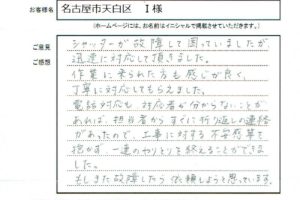 お客様名 名古屋市天白区 I 様
（ホームページには、お名前はイニシャルで掲載させていただきます。）
ご意見
ご感想
シャッターが故障して困っていましたが、
迅速に対応して頂きました。
作業に来られた方も感じが良く、
丁寧に対応してもらえました。
電話対応も対応者が分からないことが
あれば、担当者からすぐに折り返しの連絡
があったので、工事に対する不安感等を
抱かず一連のやりとりを終えることができま
した。
もしまた故障したら依頼しようと思っています。